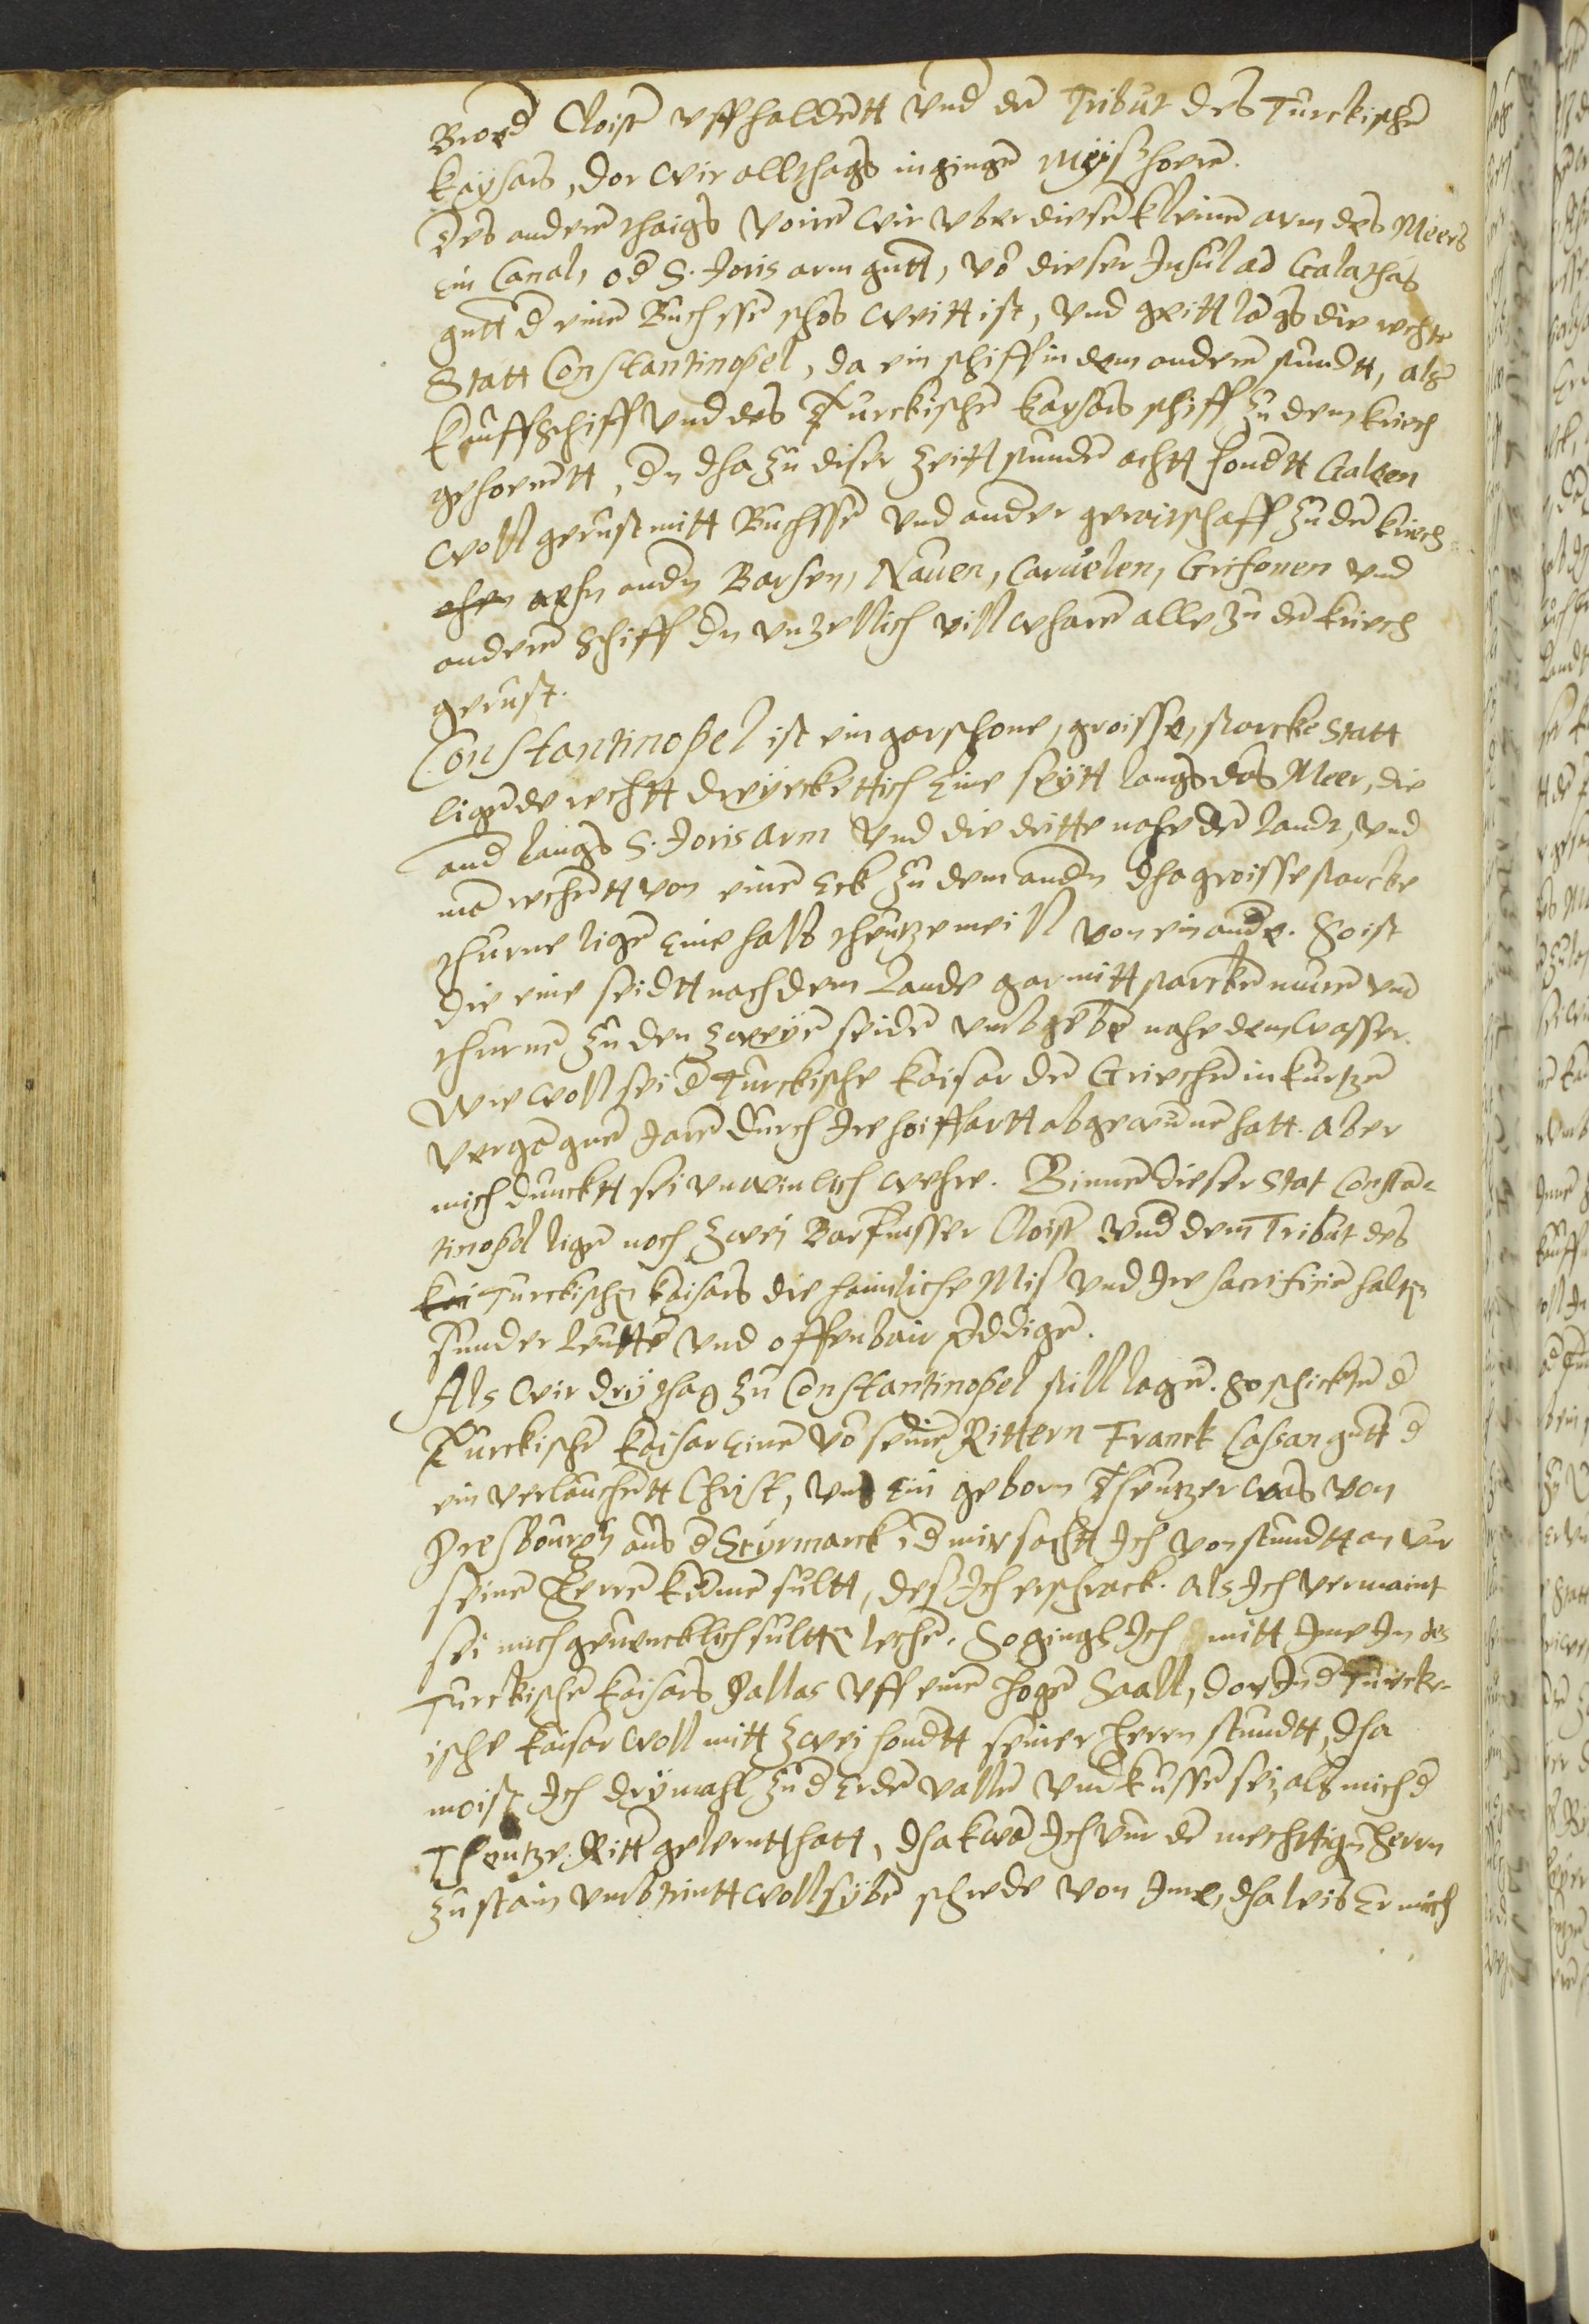 Broed Cloist uffhaldentt und den Tribut des Turckischen
kaysars, dor wir allthags ingingen Myß horen.
Des anderen thaigs voiren wir uber diesen kleinen arm des Meers
ein Canal, od S. Joris arm gntt, vō dieser Insul ad Galathas
gntt d einen Buchssen schos weitt ist, und geitt lāgs die rechte
Statt Constantinopel, da ein schiff in dem anderen stundt, als
kauffschiff und des Turckischen kaysars schiff zu dem kriech
gehorentt, dn dha zu diser zeitt stunden achtt hondtt Galeen
woll gerust mitt Buchssen und ander gereitschaff zu dē kriech
ohn andn Barsen, Nauen, Caruelen, Grifonen und
anderen Schiff dn unzellich vill wharen alle zu dē kriech
gerust.
Constantinopel ist ein gar schone, groisse, starcke Statt
ligende rechtt dreyeckettich Eine seytt langs das Meer, die
and langs S. Joris arm und die dritte nahe dē landt, und
mā rechentt von einē Eck zu dem andn dha groisse starcke
thurne ligen Eine halb theutze meill von ein ande. So ist
die eine seidtt nach dem Lande gar mitt starckē muren und
thurnen zu den zweyen seiden umbgeben nahe dem wasser.
Wie woll sei d Turckische kaisar den Griechen in kurtzen
vergāgnen Jaren durch Ire hoiffartt abgewunnē hatt. Aber
mich duncktt sei unwinlich wehre. Binnen dieser Stat Constan-
tinopel ligen noch zwei Barfuesser Cloist und dem Tribut des
Turckischen kaisars die heimliche Miß und Ire sacrificiē halten
sunder leutten und offenbair predigen.
Als wir drey thag zu Constantinopel still lagen. So schickten d
Turckischē kaisar Einen vō seinē Rittern Franck Cassan gntt d
ein verlauchentt Christ, und Ein geborn Theutzer was von
Presbourgh aus d Steyrmarck, d mir sachtt Ich von stundtt an vur
seinen Herren kommen sultt, des Ich erschrack. Als Ich vermaint
sei mich gefencklich sultten lechen. So gingh Ich mitt Ime In des
Turckischē kaisars Pallas uff einē hogen Saall, dor In d Turck-
ische kaisar woll mitt zwei hondtt seiner Herrn stundtt, dha
moist Ich dreymahl zu d Erden vallen und kussen sei, als mich d
Theutze Ritt gelerntt hatt, dha kwā Ich vur dē mechtigen Herrn
zu stain umbtrintt woll syben schrede von Ime, dha leis Er mich